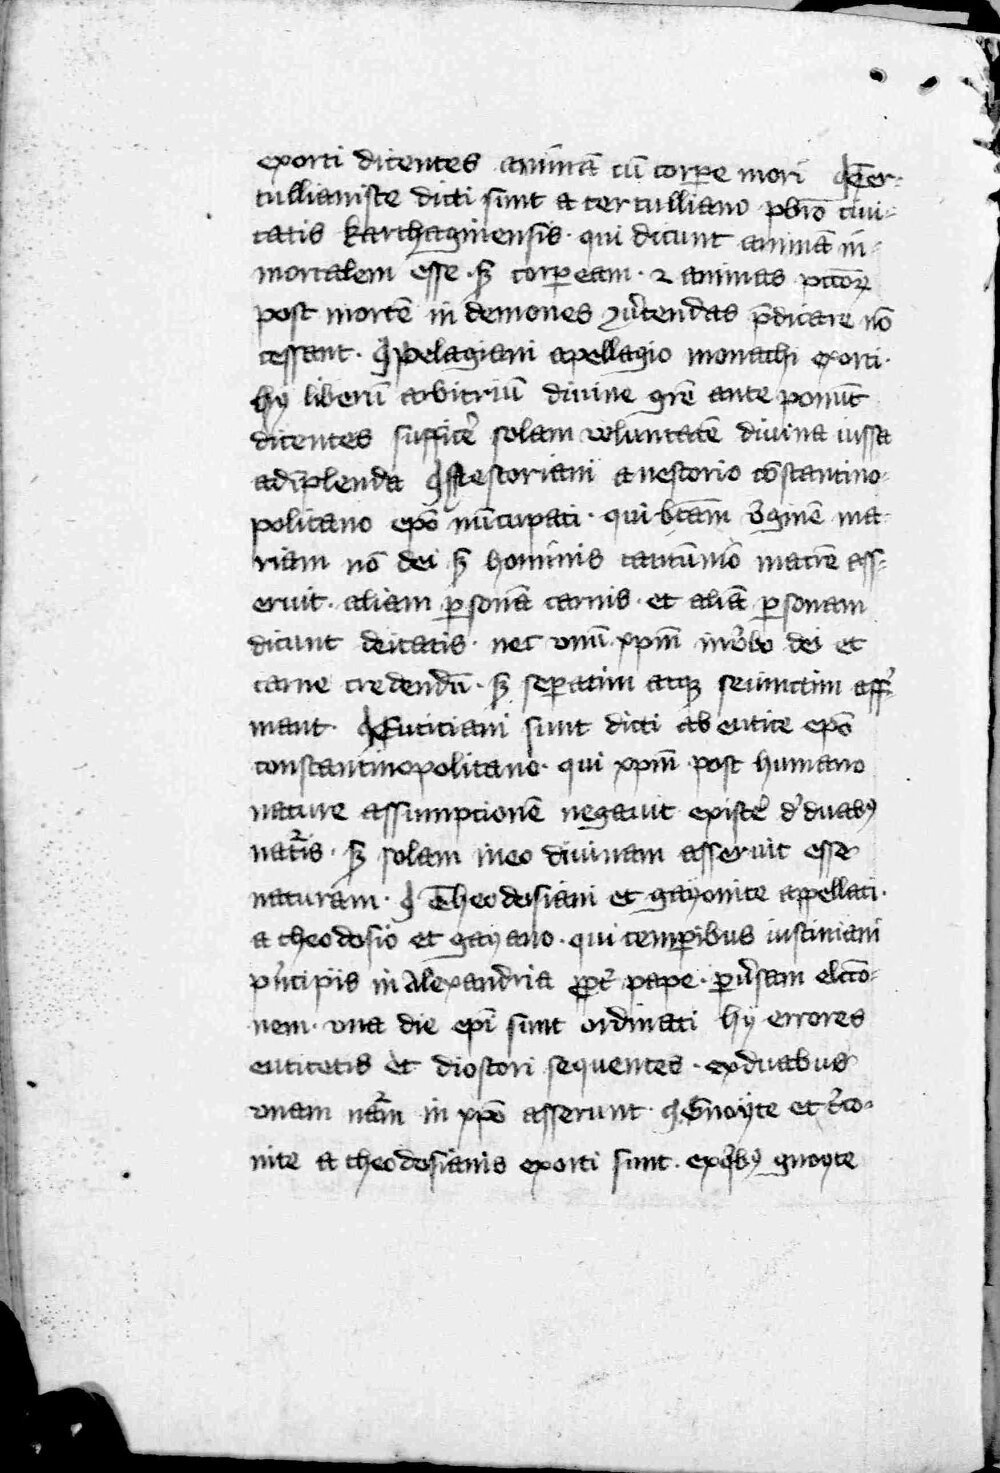 exorti dicentes animā cū corpore mori ¶ Ter-
tullianiste dicti sunt a tertulliano pbr̄o civi-
tatis karthaginensis · qui dicunt animā in-
mortalem esse · sꝫ corpeam · ⁊ animas pctōꝝ
post mortē in demones ꝯv̓tendas p̄dicare nō
cessant · ¶ pelagiani apellagio monachi exorti ·
hij liberū arbitriū divine gr̄e ante ponūt
dicentes suffice̓ solam voluntatē divina iussa
adīplenda ¶ Nestoriani a nestorio cōstantino-
politano ep̄o nūcupati · qui btām v̓ginē ma-
riam nō dei sꝫ hominis tantūmō matrē ass-
eruit · aliam ꝑsonā carnis · et aliā ꝑsonam
dicunt deitatis · nec unū xp̄m inv̓bo dei et
carne credendū · sꝫ seꝑatim atqꝫ seiunctim aff̓-
mant · ¶ Euticiani sunt dicti ab eutice ep̄o
constantinopolitano · qui xp̄m post humano
nature assumptionē negavit existe̓ d̓ duabꝰ
nat̄is · sꝫ solam ineo divinam asseruit esse
naturam · ¶ Theodosiani et gayonite appellati ·
a theodosio et gayano · qui temꝑibus iustiniani
pn̓cipiis in Alexandria ꝓpt̓ pape · ꝑv̓sam elctō-
nem · una die ep̄i sunt ordinati hij errores
euticetis et diostori sequentes · exduabus
unam nat̄m in xp̄o asserunt · ¶ Gnoyte et t̓co-
nite a theodosianis exorti sunt · exq̓bꝰ gnoyte